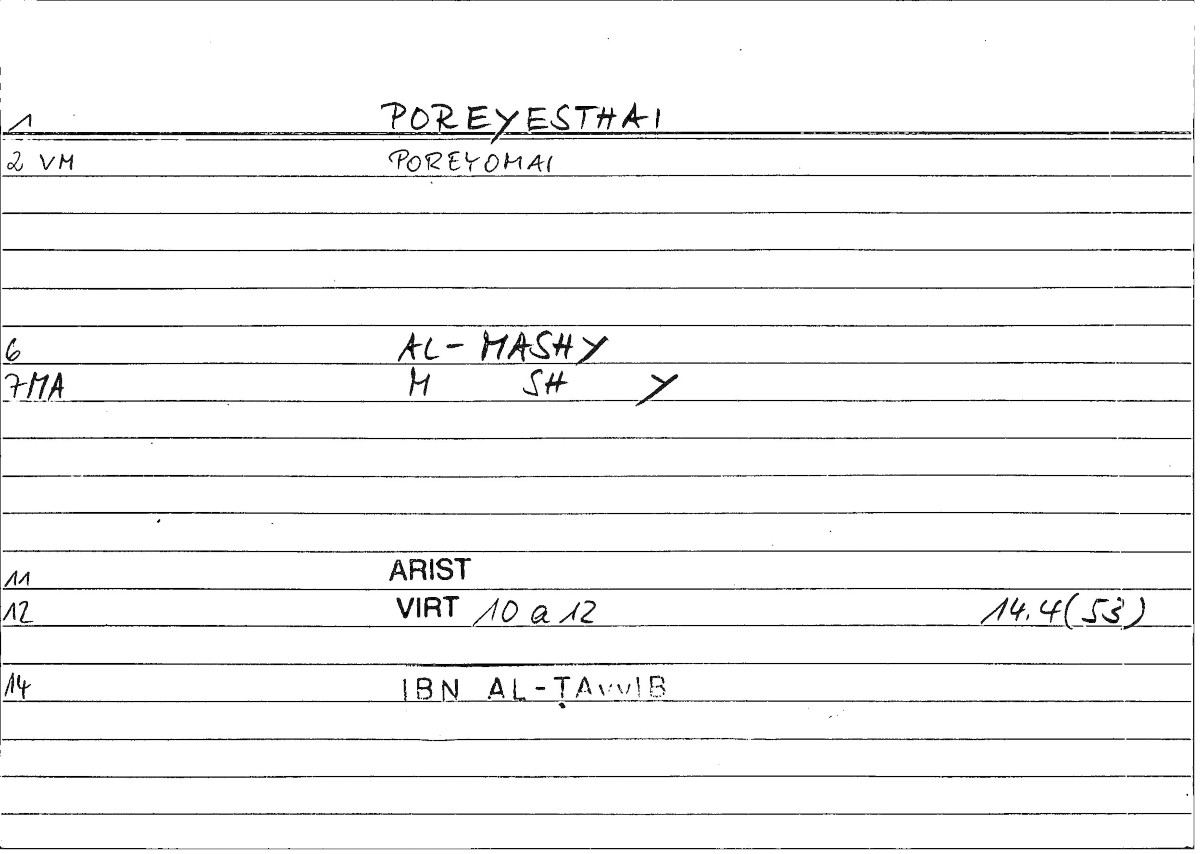 1 POREYESTHAI
2 VM POREYOMAI
6 AL-MASHY
7MA M SH Y
11 ARIST
12 VIRT 10 a 12 14.4(53)
14 IBN AL-ṬAYYIB